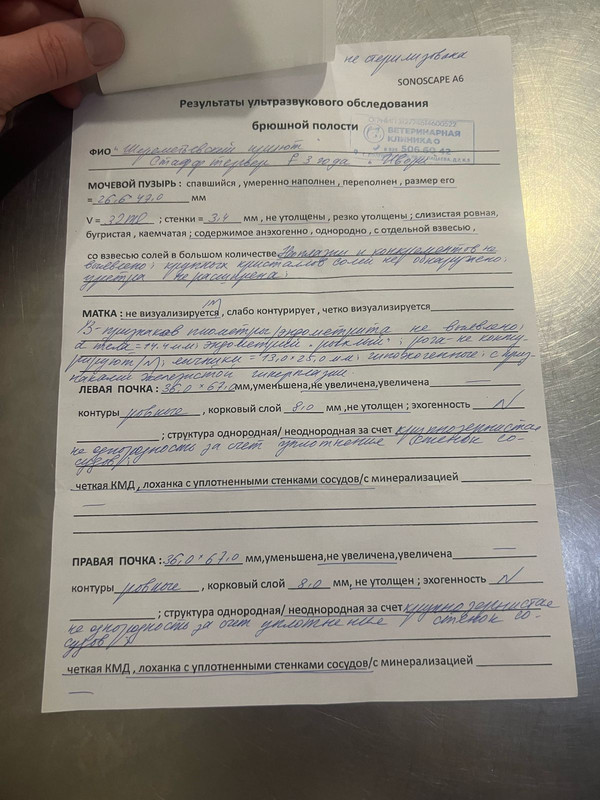 не стерилизована
SONOSCAPE A6
Результаты ультразвукового обследования
брюшной полости
ВЕТЕРИНАРНАЯ
КЛИНИКА
506 50 42
ФИО Шереметьевский приют
Стафф терьер 3 года Айвори
МОЧЕВОЙ ПУЗЫРЬ : спавшийся , умеренно наполнен , переполнен , размер его
= 26,6 * 43,0 мм
V = 32 ml ; стенки = 3,4 мм , не утолщены , резко утолщены ; слизистая ровная,
бугристая , каемчатая ; содержимое анэхогенно , однородно , с отдельной взвесью ,
со взвесью солей в большом количестве. Наплазии и конкрементов не
выявлено; крупных кристаллов солей не обнаружено;
уретра не расширена;
МАТКА : не визуализируется , слабо контурирует , четко визуализируется
В-признаков пиометры/эндометрита не выявлено;
d тела = 14,4 мм; эндометрий ровный; рога - не конту-
рируют /N/; яичники = 13,0 * 25,0 мм; гипоэхогенные; с приз-
наками железистой гиперплазии.
ЛЕВАЯ ПОЧКА : 36,0 * 67,0 мм,уменьшена,не увеличена,увеличена —
контуры ровные , корковый слой 8,0 мм ,не утолщен ; эхогенность N
; структура однородная/ неоднородная за счет крупнозернистая
не однородность за счет уплотнение стенок со-
судов;
четкая КМД , лоханка с уплотненными стенками сосудов/с минерализацией
—
ПРАВАЯ ПОЧКА : 36,0 * 67,0 мм,уменьшена,не увеличена,увеличена —
контуры ровные , корковый слой 8,0 мм , не утолщен ; эхогенность N
; структура однородная/ неоднородная за счет крупнозернистая
не однородность за счет уплотнение стенок со-
судов
четкая КМД , лоханка с уплотненными стенками сосудов/с минерализацией
—